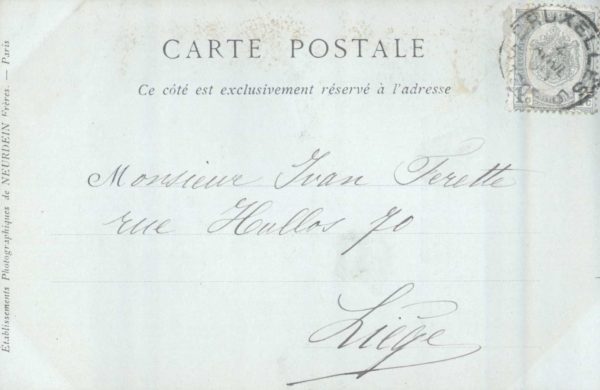 CARTE POSTALE
Ce côté est exclusivement réservé à l'adresse
BRUXELLES
Monsieur Ivan Ferette
rue Hullos 70
Liège
Établissements Photographiques de NEURDEIN Frères. — Paris